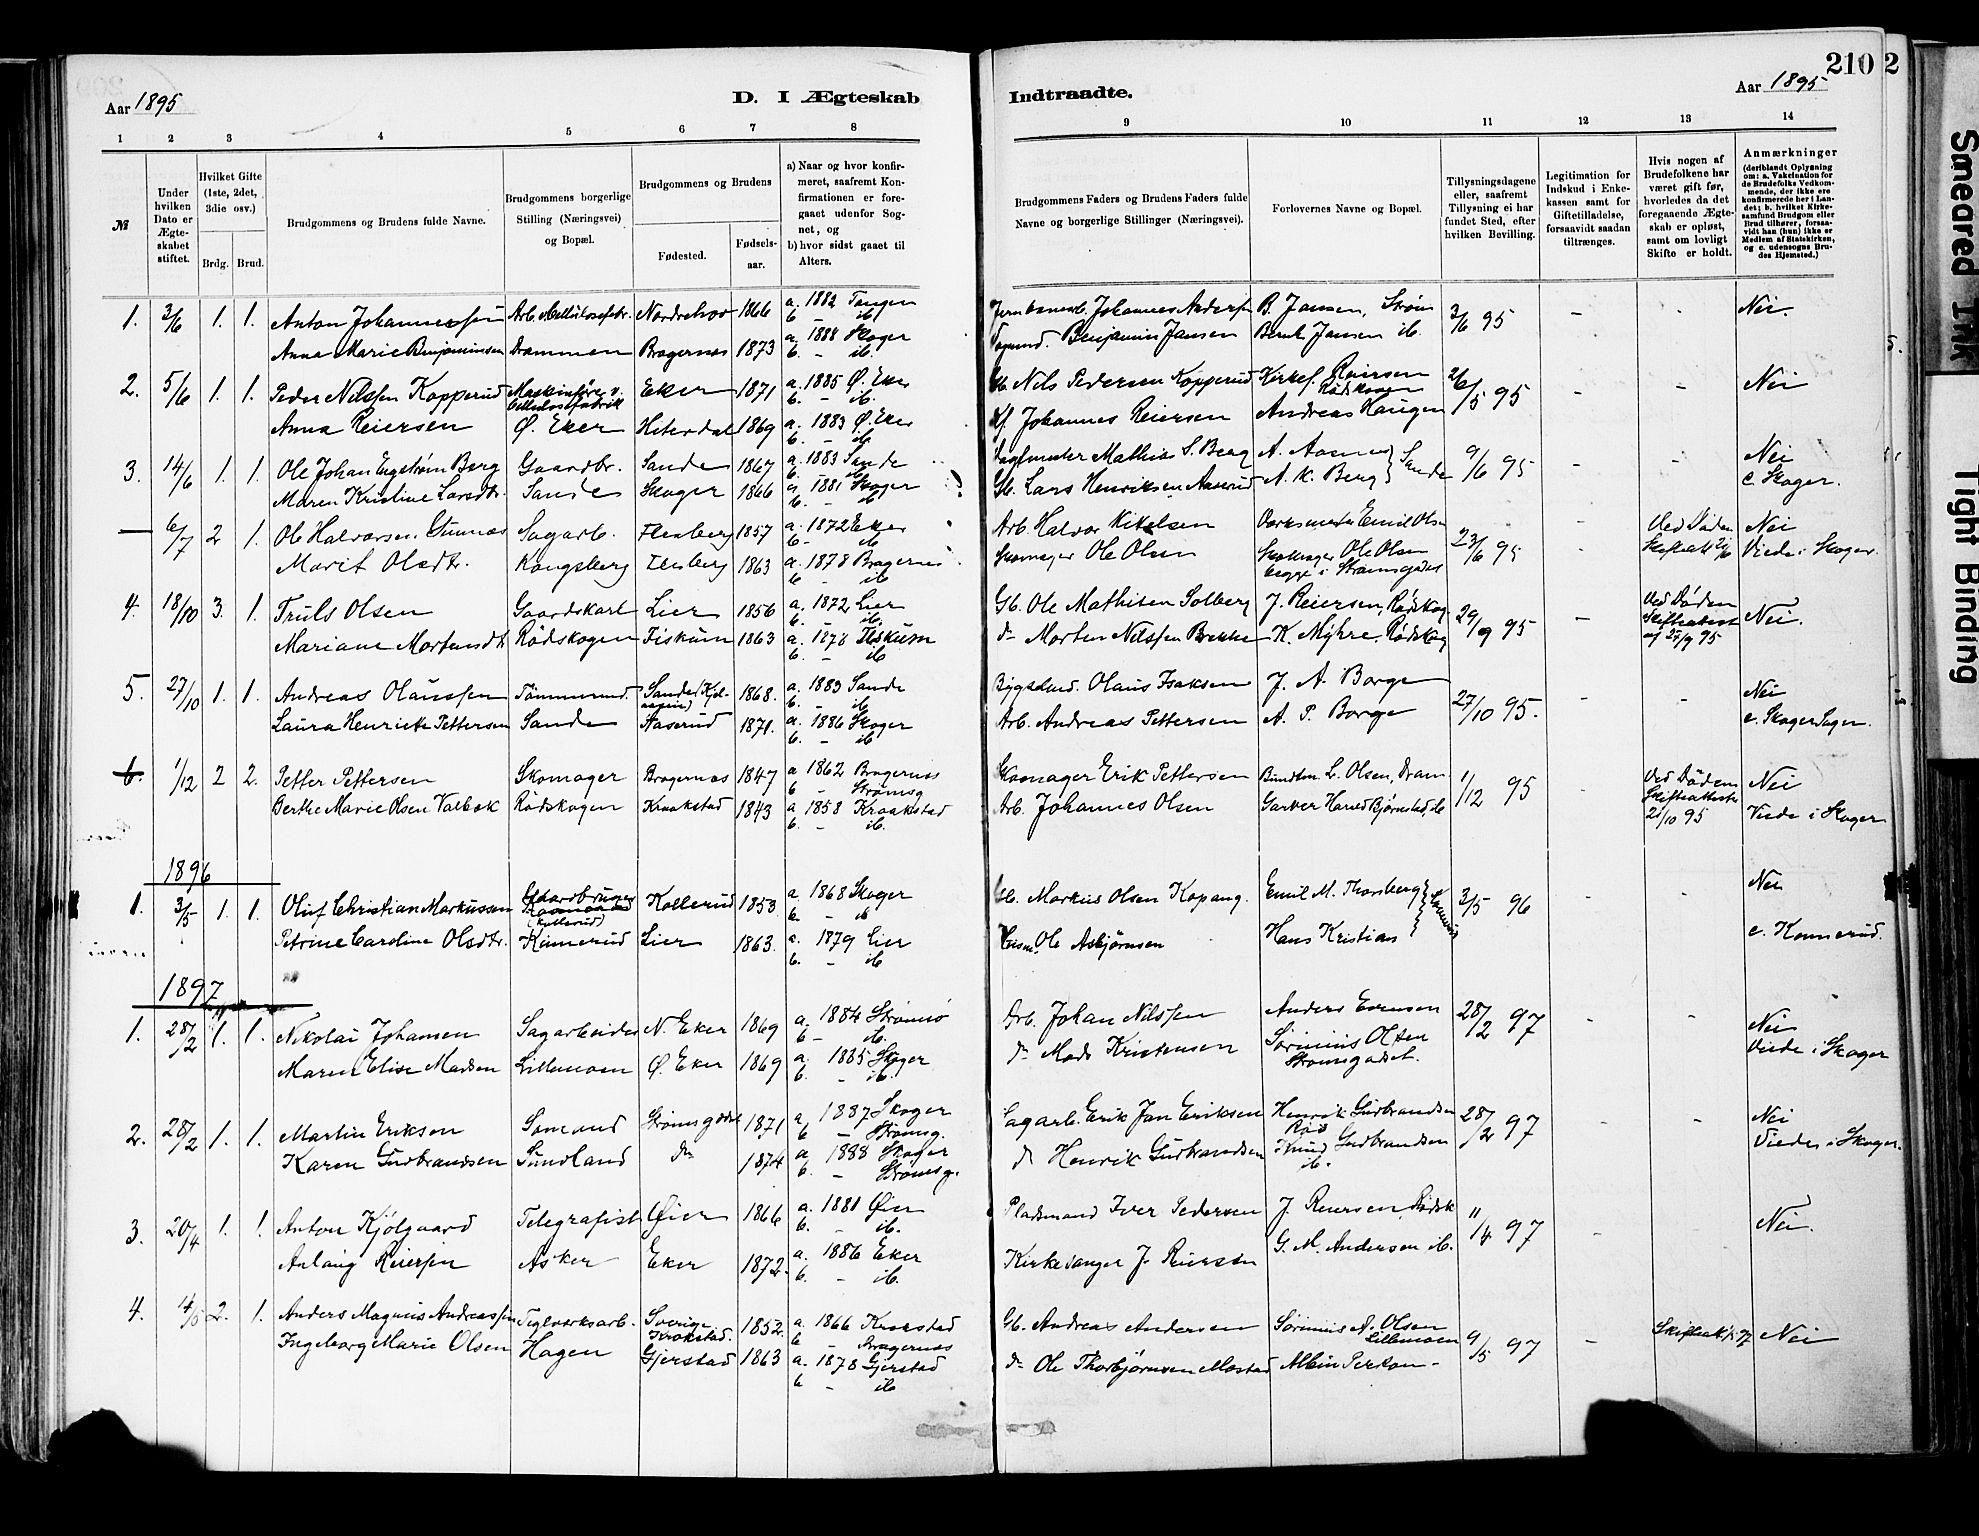 210 2
Aar 1895
D. I Ægteskab
Indtraadte.
Aar 1895
1 2 3 4 5 6 7 8
9 10 11 12 13 14
№
Under hvilken Dato er Ægteskabet stiftet.
Hvilket Gifte (1ste, 2det, 3die osv.)
Brdg. Brud.
Brudgommens og Brudens fulde Navne.
Brudgommens borgerlige Stilling (Næringsvei) og Bopæl.
Brudgommens og Brudens
Fødested. Fødselsaar.
a) Naar og hvor konfirmeret, saafremt Konfirmationen er foregaaet udenfor Sognet, og
b) hvor sidst gaaet til Alters.
Brudgommens Faders og Brudens Faders fulde Navne og borgerlige Stillinger (Næringsvei).
Forlovernes Navne og Bopæl.
Tillysningsdagene eller, saafremt Tillysning ei har fundet Sted, efter hvilken Bevilling.
Legitimation for Indskud i Enkekassen samt for Giftetilladelse, forsaavidt saadan tiltrænges.
Hvis nogen af Brudefolkene har været gift før, hvorledes da det foregaaende Ægteskab er opløst, samt om lovligt Skifte er holdt.
Anmærkninger (deriblandt Oplysning om: a. Vakcination for de Brudefolks Vedkommende, der ikke ere konfirmerede her i Landet; b. hvilket Kirkesamfund Brudgom eller Brud tilhører, forsaavidt han (hun) ikke er Medlem af Statskirken, og c. udensogns Brudes Hjemsted.)
1. 3/6 1. 1. Anton Johannessen Nordrehov 1866 a. 1882 Tangen b. - ib. Johannes Anders B. Jansen, Strøm 3/6 95 - - Nei.
Anna Marie Benjaminsen Drammen Bragernæs 1873 a. 1888 Skoger b. - ib. Benjamin Jansen Bernt Jansen ib.
2. 5/6 1. 1. Peder Nilssen Kopperud Maskinfører v. Cellulosefabrik Eker 1871 a. 1885 Ø. Eker b. - ib. Nils Pedersen Kopperud Kirkes. Reiersen Rødskogen 26/5 95 - - Nei
Anna Reiersen Ø. Eker Hiterdal 1869 a. 1883 Ø. Eker b. - ib. Johannes Reiersen Andreas Haugen
3. 14/6 1. 1. Ole Johan Engstrøm Berg Gaardbr. Sande 1867 a. 1883 Sande b. Mathias S. Berg A. Aasnes Sande 9/6 95 - - Nei
Maren Kristine Larsdtr. Sande Skoger 1866 a. 1881 Skoger b. - ib. Gb. Lars Henriksen Aaserud A. K. Berg c. Skoger.
— 6/7 2 1. Ole Halvorsen Sagarb. Flesberg 1857 a. 1872 Eker b. - ib Arb. Halvor Kittelsen Værksmester Emil Olsen 23/6 95 - Ved Døden Skifteatt. Nei
Marit Olsdtr. Kongsberg Flesberg 1863 a. 1878 Bragernes b. - ib Skomager Ole Olsen Skomager Ole Olsen begge i Strømsgodset Viede i Skoger.
4. 18/10 3. 1. Truls Olsen Gaardskarl Lier 1856 a. 1872 Lier b. - ib. Gb. Ole Mathisen Solberg J. Reiersen, Rødskog 29/9 95 - Ved Døden Skifteattest af 27/9 95 Nei.
Mariane Mortensdtr Rødskogen Fiskum 1863 a. 1878 Fiskum b. - ib do Morten Nilssen Brekke K. Myhre, Rødskog
5. 27/10 1. 1. Andreas Olaussen Tømmermd. Sande 1868. a. 1883 Sande b. - ib Bygselmd. Olaus Isaksen J. A. Borge 27/10 95. - - Nei
Laura Henriette Pettersen Sande Aaserud 1871. a. 1886 Skoger b. - ib Arb. Andreas Pettersen A. P. Borge c. Skoger Sogn.
6. 1/12 2 2. Petter Pettersen Skomager Bragernæs 1847 a. 1862 Bragernæs b. - Strømsg Skomager Erik Pettersen L. Olsen, Dram 1/12 95 - Ved Døden Skifteattester 21/10 95 Nei
Berthe Marie Olsen Valbæk Rødskogen Kraakstad 1843 a 1858 Kraakstad b. - ib. Arb. Johannes Olsen Garver Harald Bjørnstad, ib Viede i Skoger
1896
1. 3/5 1. 1. Oluf Christian Markussen Gaardbruger (Kollerud) Kollerud 1853 a. 1868 Skoger b. - ib Gb. Markus Olsen Kopang. Emil M. Thorsberg 3/5 96 Nei
Petrine Caroline Olsdtr. Konnerud Lier 1863. a. 1879 Lier b. - ib Ole Asbjørnsen Hans Kristian c. Konnerud.
1897
1. 28/2 1. 1. Nikolai Johansen Sagarbeider N. Eker 1869 a. 1884 Strømsø b - ib. Arb. Johan Nilssen Anders Evensen 28/2 97 - - Nei
Maren Elise Madsen Lillemoen Ø. Eker 1869 a. 1885 Skoger b. - ib. do Mads Kristensen Sørinius Olsen Strømsgodset. Viede i Skoger
2. 28/2 1. 1. Martin Eriksen Sømand Strømsgodset 1871 a. 1887 Skoger b - Strømsg. Sagarb. Erik Jan Eriksen Henrik Gudbrandsen 28/2 97 - - Nei
Karen Gudbrandsen Sundland do 1874 a. 1888 Skoger b. - Strømsg. d Henrik Gudbrandsen Knud Gudbrandsen ib. Viede i Skoger.
3. 20/4 1. 1. Anton Kjølgaard Telegrafist Øier 1866 a. 1881 Øier b. - ib. Pladsmand Iver Pedersen J. Reiersen, Rødsk 11/4 97 - Nei.
Anlaug Reiersen Asker Eker 1872. a. 1886 Eker b. - ib. Kirkesanger J. Reiersen G. M. Andersen ib.
4. 14/5 2. 1. Anders Magnus Andreassen Teglværksarb. Sverige Krokstad. 1852. a. 1866 Krokstad b - Bragernæs Gb. Andreas Andersen Sørinius A. Olsen Lillemoen 9/5 97 - Nei
Ingeborg Marie Olsen Hagen Gjerstad 1863 a. 1878 Gjerstad b - ib do Ole Thorbjørnsen Mostad Albin Person -
Smeared Ink
Tight Binding